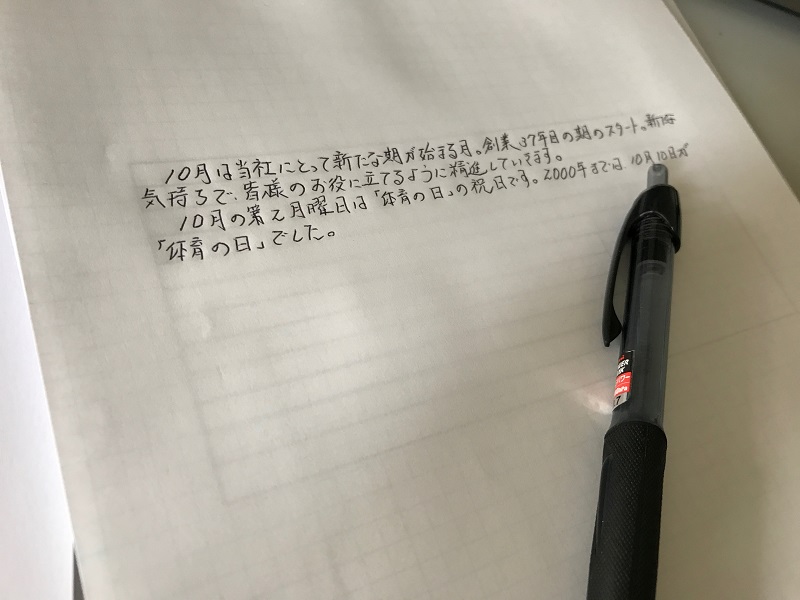 10月は当社にとって新たな期が始まる月。創業37年目の期のスタート。新たな
気持ちで、皆様のお役に立てるように精進していきます。
10月の第2月曜日は「体育の日」の祝日です。2000年までは10月10日が
「体育の日」でした。